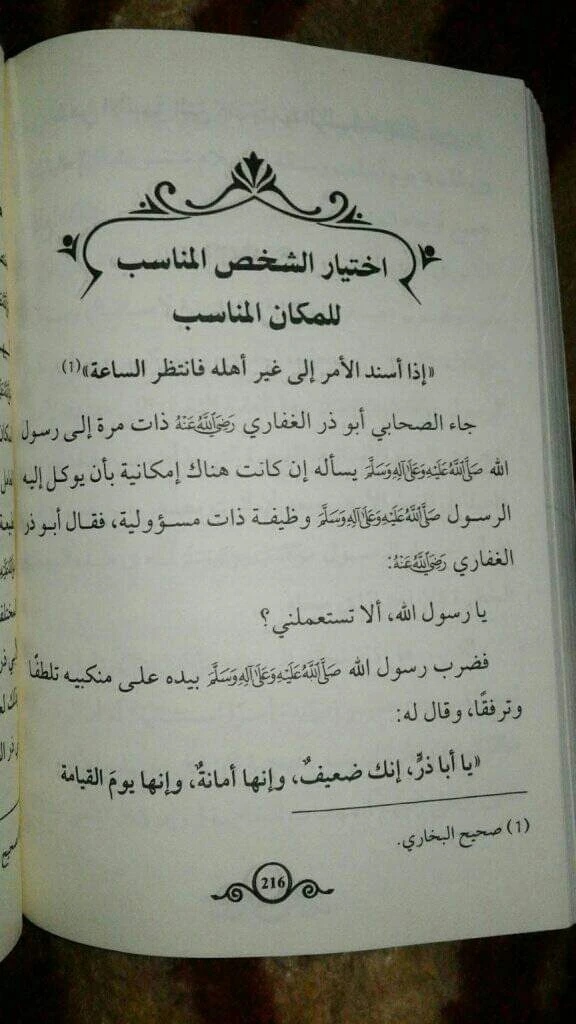 اختيار الشخص المناسب
للمكان المناسب
«إذا أسند الأمر إلى غير أهله فانتظر الساعة»(1)
جاء الصحابي أبو ذر الغفاري رَضِيَ اللَّهُ عَنْهُ ذات مرة إلى رسول
الله صَلَّى اللَّهُ عَلَيْهِ وَعَلَى آلِهِ وَسَلَّمَ يسأله إن كانت هناك إمكانية بأن يوكل إليه
الرسول صَلَّى اللَّهُ عَلَيْهِ وَعَلَى آلِهِ وَسَلَّمَ وظيفة ذات مسؤولية، فقال أبو ذر
الغفاري رَضِيَ اللَّهُ عَنْهُ:
يا رسول الله، ألا تستعملني؟
فضرب رسول الله صَلَّى اللَّهُ عَلَيْهِ وَعَلَى آلِهِ وَسَلَّمَ بيده على منكبيه تلطفًا
وترفقًا، وقال له:
«يا أبا ذرٍّ، إنك ضعيفٌ، وإنها أمانةٌ، وإنها يومَ القيامة
(1) صحيح البخاري.
216